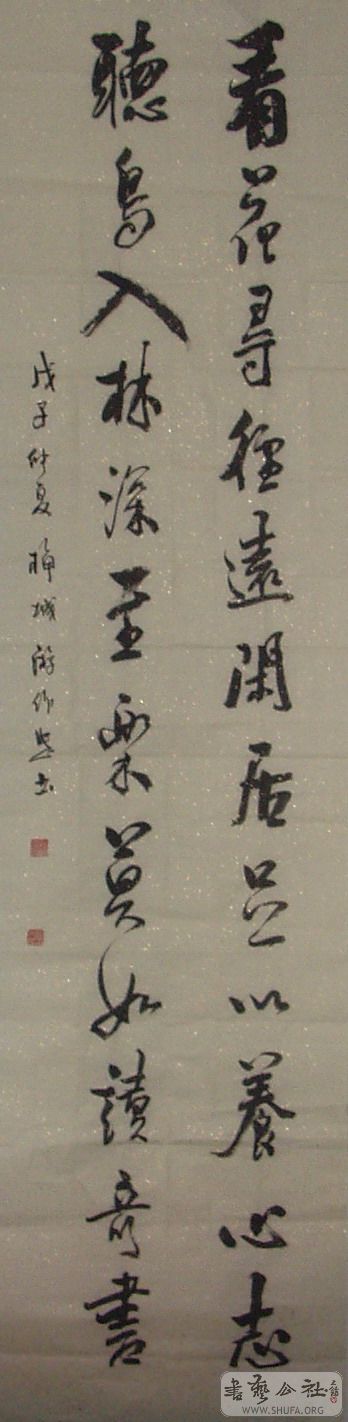 看花尋徑遠閑居足以養心志
聽鳥入林深至樂莫如讀奇書
戊子仲夏 城 游作 书
書藝公社
WWW.SHUFA.ORG